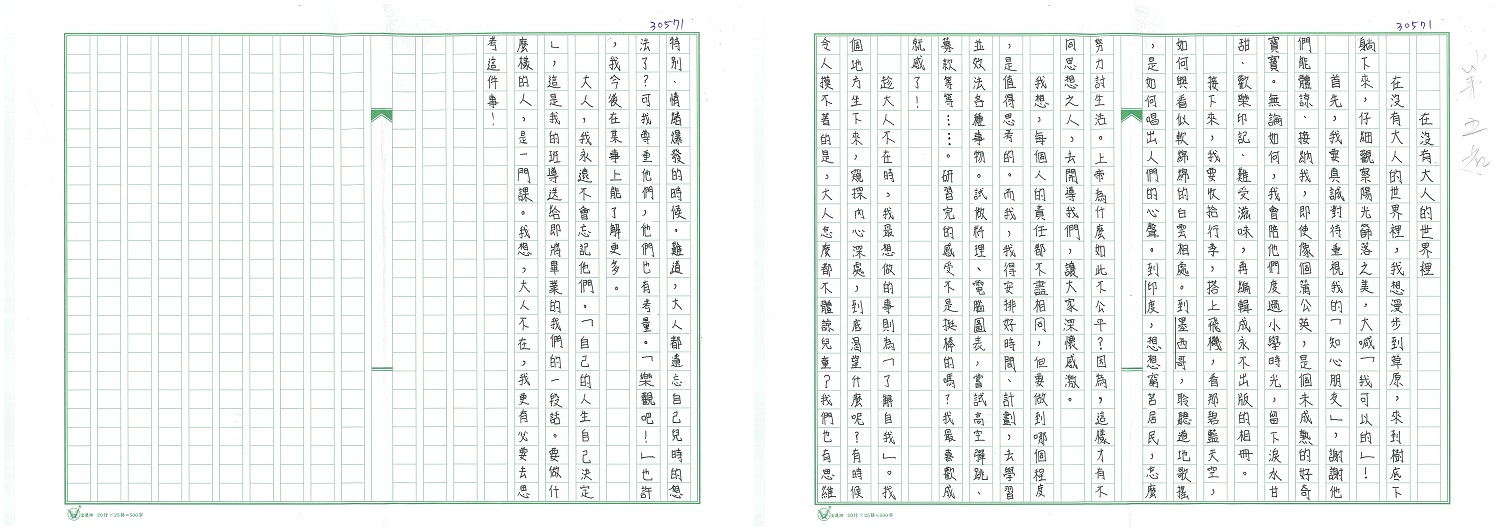 30571
第五名
在沒有大人的世界裡
在沒有大人的世界裡，我想漫步到草原，來到樹底下
躺下來，仔細觀察陽光篩落之美，大喊「我可以的」！
首先，我要真誠對待重視我的「知心朋友」，謝謝他
們能體諒、接納我，即使像個蒲公英，是個未成熟的好奇
寶寶。無論如何，我會陪他們度過小學時光，留下淚水甘
甜、歡樂印記、難受滋味，再編輯成永不出版的相冊。
接下來，我要收拾行李，搭上飛機，看那碧藍天空，
如何與看似軟綿綿的白雲相處。到墨西哥，聆聽道地歌搖
，是如何唱出人們的心聲。到印度，想想窮苦居民，怎麼
努力討生活。上帝為什麼如此不公平？因為，這樣才有不
同思想之人，去開導我們，讓大家深懷感激。
我想，每個人的責任都不盡相同，但要做到哪個程度
，是值得思考的。而我，我得安排好時間、計劃，去學習
並效法各種事物。試做料理、電腦圖表，嘗試高空彈跳、
募款等等……。研習完的感受不是挺棒的嗎？我最喜歡成
就感了！
趁大人不在時，我最想做的事則為「了解自我」。找
個地方坐下來，窺探內心深處，到底渴望什麼呢？有時候
令人摸不著的是，大人怎麼都不體諒兒童？我們也有思維
20行×25格=500字
30571
特別、情緒爆發的時候。難道，大人都遺忘自己兒時的想
法了？可我尊重他們，他們也有考量。「樂觀吧！」也許
，我今後在某事上能了解更多。
大人，我永遠不會忘記他們。「自己的人生自己決定
」，這是我的班導送給即將畢業的我們的一段話。要做什
麼樣的人，是一門課。我想，大人不在，我更有必要去思
考這件事！
20行×25格=500字